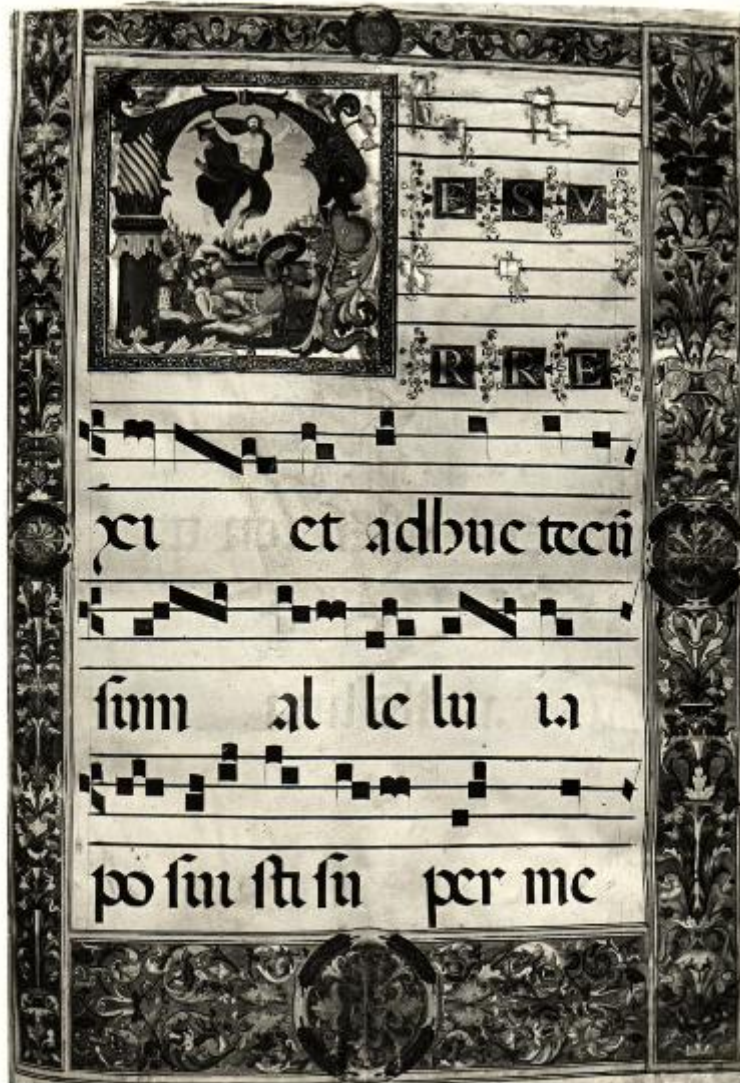 RESV
RRE
xi et adhuc tecū
sum al le lu ia
po sui sti su per me